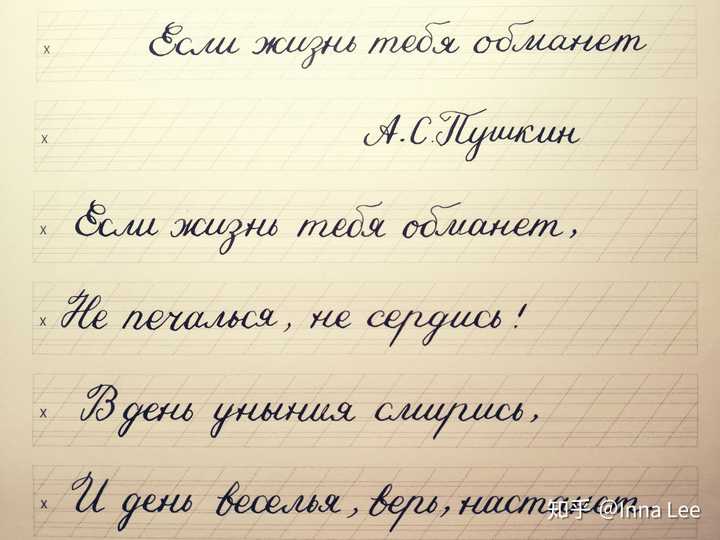 Если жизнь тебя обманет
А.С.Пушкин
Если жизнь тебя обманет,
Не печалься, не сердись!
В день уныния смирись,
И день веселья, верь, настанет.
知乎 @Inna Lee